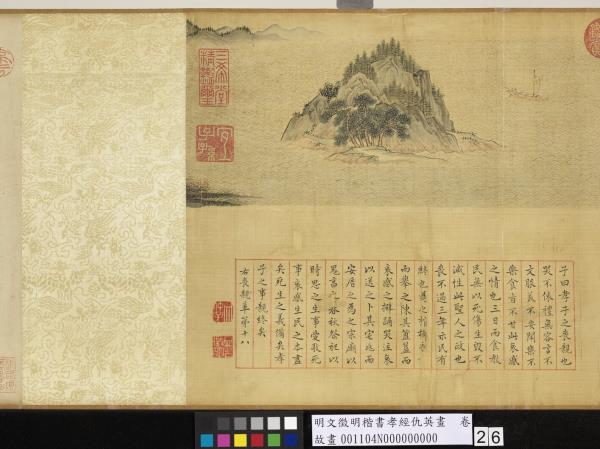 三希堂精鑑璽
宜子孫
子曰孝子之喪親也
哭不偯禮無容言不
文服美不安聞樂不
樂食旨不甘此哀慼
之情也三日而食教
民無以死傷生毀不
滅性此聖人之政也
喪不過三年示民有
終也為之棺槨衣
而舉之陳其簠簋而
哀慼之擗踊哭泣哀
以送之卜其宅兆而
安厝之為之宗廟以
鬼享之春秋祭祀以
時思之生事愛敬死
事哀慼生民之本盡
矣死生之義備矣孝
子之事親終矣
右喪親章第十八
明文徵明楷書孝經仇英畫 卷
故畫001104N000000000
26